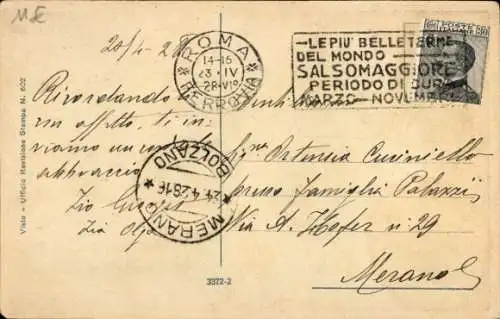 ME
20/4-28
ROMA
14-15
23·IV
28·VIº
FERROVIA
LE PIU' BELLE TERME
DEL MONDO
SALSOMAGGIORE
PERIODO DI CURA
MARZO - NOVEMBRE
POSTE
Ricordando
un affetto, ti in-
viamo un
abbraccio
Zio
Zia Olga
Sig.na Ortensia Cuciniello
presso Famiglia Palazzi
Via A. Hofer n. 29
Merano
MERANO
24.4.28.16
BOLZANO
Visto - Ufficio Revisione Stampa N. 602
3372-2